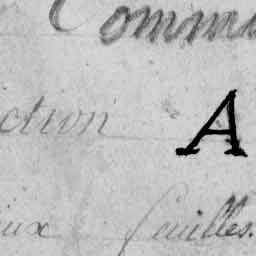 Commu
ction A
eux feuilles.